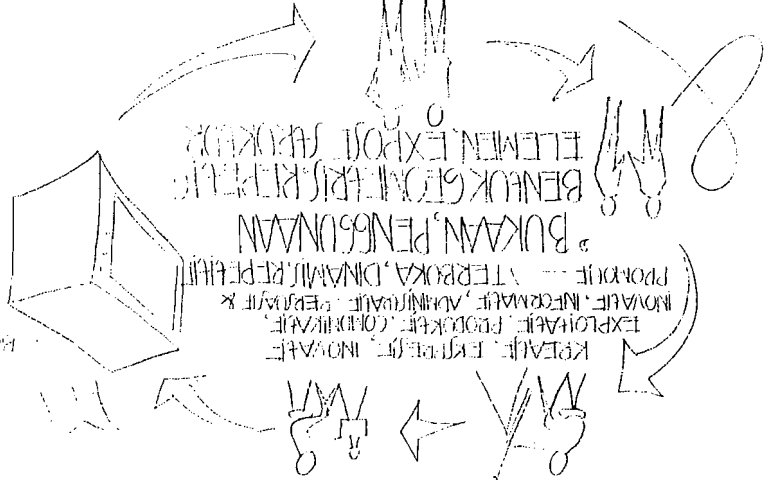 KREATIF, EKSPRESIF, INOVATIF
EXPLOITATIF, PRODUKTIF, COMUNIKATIF,
INOVATIF, INFORMATIF, ADMINISTRATIF, PERSUASIF &
PROMOTIF TERBUKA, DINAMIS, REPETITIF
BUKAAN, PENGGUNAAN
BENTUK GEOMETRIS, REPETITIF
ELEMEN, EXPOSE STRUKTUR